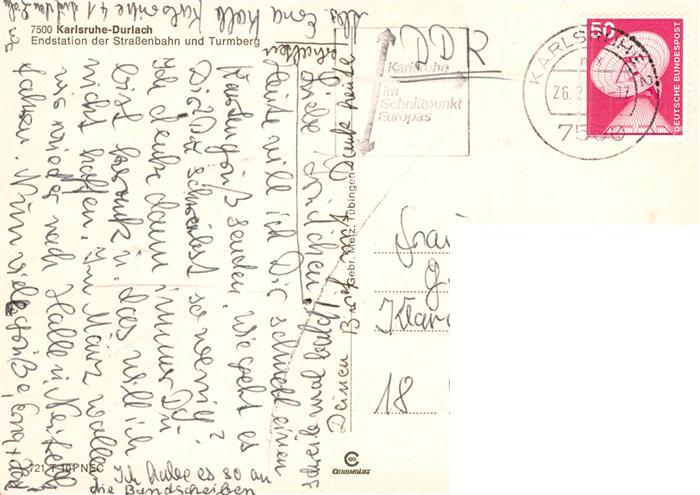 7500 Karlsruhe-Durlach
Endstation der Straßenbahn und Turmberg
DDR
KARLSRUHE 2
26.2.
7500
Karlsruhe
im
Schnittpunkt
Europas
50
DEUTSCHE BUNDESPOST
Gebr. Metz, Tübingen
Deinen Brief mit Dank heute
erhalten
schreib mal bald!
Heute will ich Dir schnell einen
Kartengruß senden. Wie geht es
Dir? Du schreibst so wenig?
Ich denke dann immer Du
bist krank u. das will ich
nicht hoffen. Im März wollen
wir wieder nach Halle u.
fahren. Nun viele Grüße
Ich habe es so an
die Bandscheiben
Frau
18
CHROMOLUX